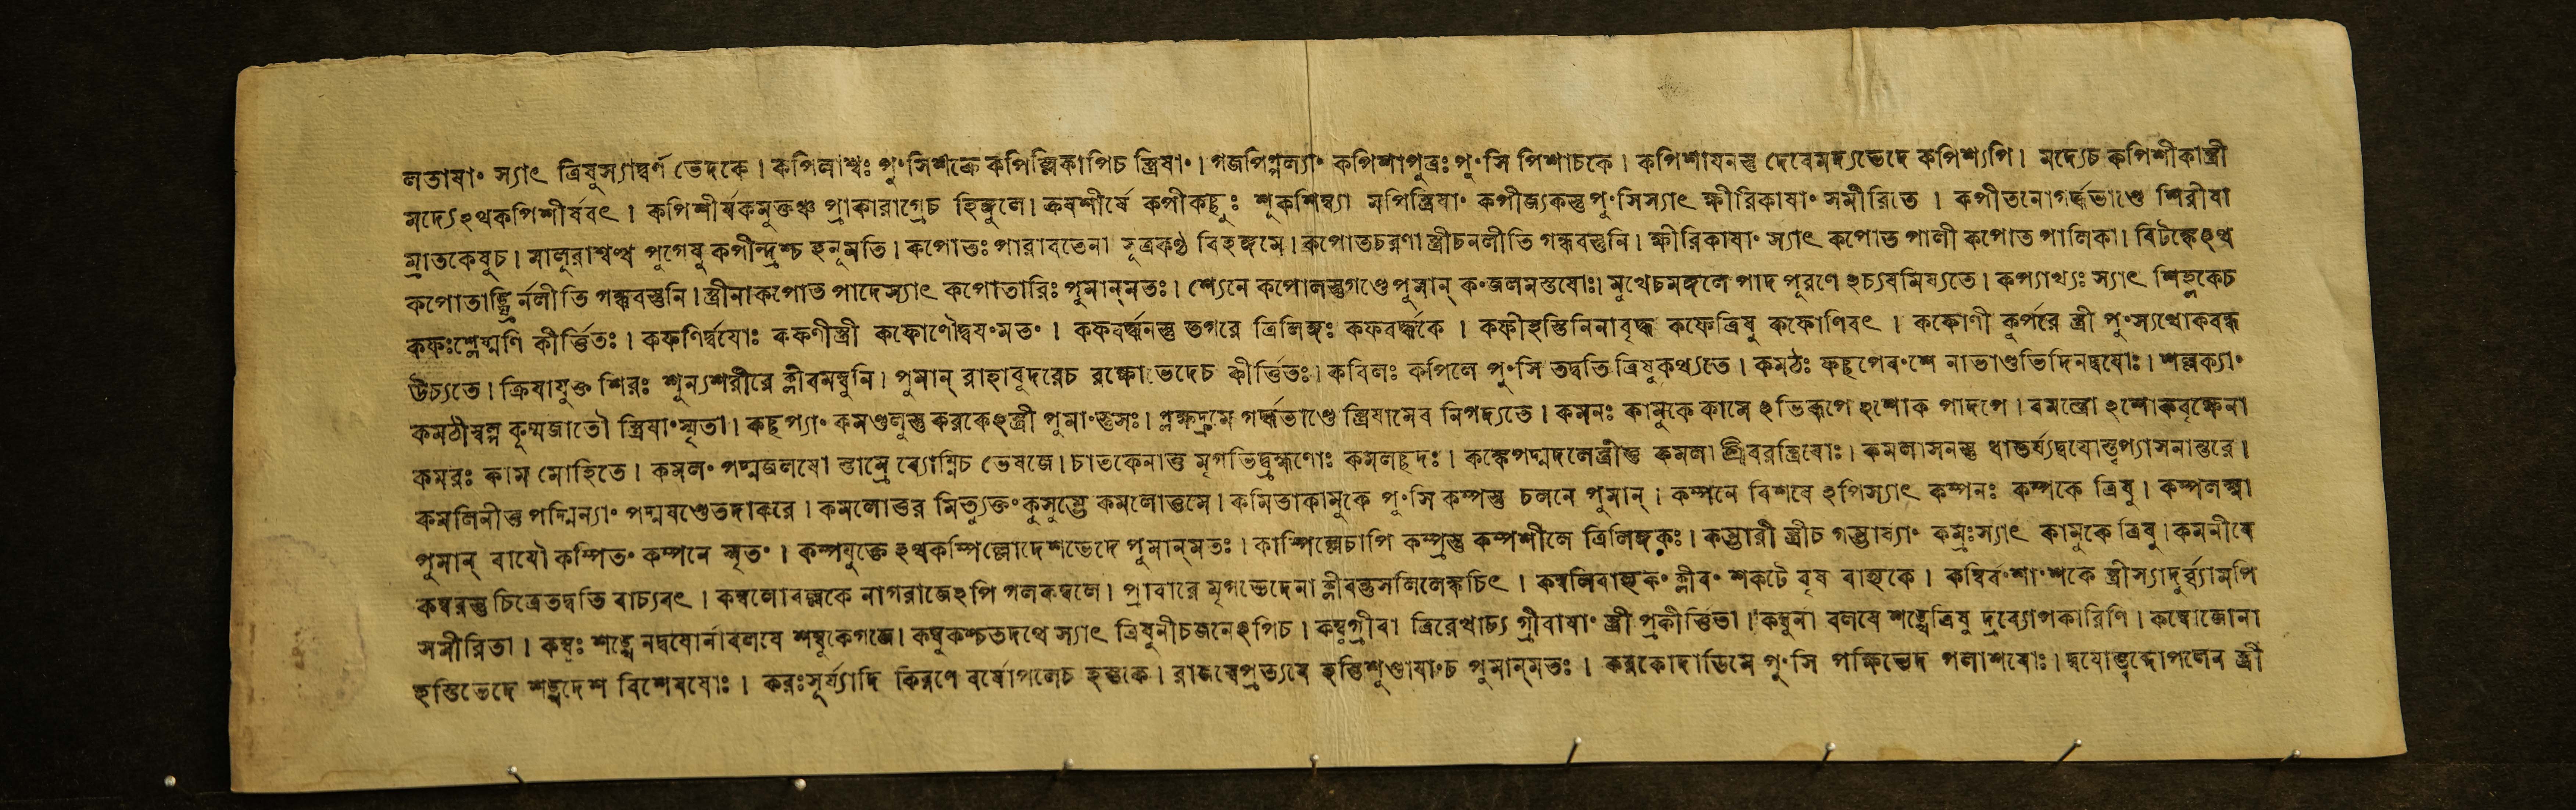 লতাযা॰ স্যাৎ ত্রিষুস্যাদ্বর্ণ ভেদকে। কপিলাশ্বঃ পু॰সিশক্রে কপিল্লিকাপিচ স্ত্রিযা॰। গজপিপ্পল্যা॰ কপিশাপুত্রঃ পু॰সি পিশাচকে। কপিশাযনন্তু দেবেমদ্যভেদে কপিশ্যপি। মদ্যেচ কপিশীকাস্ত্রী
মদ্যেঽথকপিশীর্ষবৎ। কপিশীর্ষকমুক্তঞ্চ প্রাকারাগ্রেচ হিঙ্গুলে। ক্রমশীর্ষে কপীকচ্ছুঃ শূকশিম্ব্যা মপিস্ত্রিযা॰ কপীজ্যকস্তুপু॰সিস্যাৎ ক্ষীরিকাযা॰ সমীরিতে। কপীতনোগর্দ্দভাণ্ডে শিরীষা
ম্রাতকেষুচ। মালুরাশ্বত্থ পুগেষু কপীন্দ্রশ্চ হনূমতি। কপোতঃ পারাবতেনা সূত্রকণ্ঠ বিহঙ্গমে। কপোতচরণা স্ত্রীচনলীতি গন্ধবস্তুনি। ক্ষীরিকাযা॰ স্যাৎ কপোত পালী কপোত পালিকা। বিটঙ্কেঽথ
কপোতাঙ্ঘ্রি র্নলীতি গন্ধবস্তুনি। স্ত্রীনাকপোত পাদেস্যাৎ কপোতারিঃ পুমান্‌মতঃ। শ্যেনে কপোলস্তুগণ্ডেপুমান্ ক॰জলমস্তযোঃ। মুখেচমঙ্গলে পাদ পূরণে ঽচ্যযমিষ্যতে। কপ্যাখ্যঃ স্যাৎ শিহ্লকেচ
কফঃশ্লেষ্মণি কীর্ত্তিতঃ। কফণির্দ্বযোঃ কফণীস্ত্রী কফোণৌদ্বয॰মত॰। কফবর্দ্ধনস্তু তগরে ত্রিলিঙ্গঃ কফবর্দ্ধকে। কফীহস্তিনিনাবৃদ্ধ কফেত্রিষু কফোণিবৎ। কফোণী কূর্পরে স্ত্রী পু॰স্যথোকবন্ধ
উচ্যতে। ক্রিযাযুক্ত শিরঃ শূন্যশরীরে ক্লীবমম্বুনি। পুমান্ রাহাবূদরেচ রক্ষোভেদেচ কীর্ত্তিতঃ। কবিলঃ কপিলে পু॰সি তদ্বতি ত্রিষুকথ্যতে। কমঠঃ কচ্ছপেব॰শে নাভাণ্ডভিদিনদ্বযোঃ। শল্লক্যা॰
কমঠীস্বল্প কূর্ম্মজাতৌ স্ত্রিযা॰স্মৃতা। কচ্ছপ্যা॰ কমণ্ডলুস্তু করকেঽস্ত্রী পুমা॰স্তুসঃ। প্লক্ষদ্রুমে গর্দ্দভাণ্ডে স্ত্রিযামেব নিগদ্যতে। কমনঃ কামুকে কামে ঽভিরূপে ঽশোক পাদপে। বমন্তো ঽশোকবৃক্ষেনা
কমরঃ কাম মোহিতে। কমল॰ পদ্মজলযো স্তাম্রে ব্যোম্নিচ ভেষজে। চাতকেনাতু মৃগভিদ্ব্রহ্মণোঃ কমলচ্ছদঃ। কঙ্কেপদ্মদলেস্ত্রীতু কমলা শ্রীবরস্ত্রিযোঃ। কমলাসনস্তু ধাতর্য্যদ্বযোস্তুপ্যাসনান্তরে।
কমলিনীতু পদ্মিন্যা॰ পদ্মষণ্ডেতদাকরে। কমলোত্তর মিত্যুক্ত॰কুসুম্ভে কমলোত্তমে। কমিতাকামুকে পু॰সি কম্পস্তু চলনে পুমান্। কম্পনে বিশযে ঽপিস্যাৎ কম্পনঃ কম্পকে ত্রিষু। কম্পলক্ষ্মা
পুমান্ বাযৌ কম্পিত॰ কম্পনে স্মৃত॰। কম্পযুক্তে ঽথকম্পিল্লোদেশভেদে পুমান্‌মতঃ। কাম্পিল্লেচাপি কম্প্রস্তু কম্পশীলে ত্রিলিঙ্গকঃ। কম্ভারী স্ত্রীচ গম্ভার্য্যা॰ কম্রঃস্যাৎ কামুকে ত্রিষু। কমনীযে
কম্বরস্তু চিত্রেতদ্বতি বাচ্যবৎ। কম্বলোবল্লকে নাগরাজেঽপি গলকম্বলে। প্রাবারে মৃগভেদেনা ক্লীবন্তুসলিলেক্বচিৎ। কম্বলিবাহ্যক॰ ক্লীব॰ শকটে বৃষ বাহ্যকে। কম্বির্ব॰শা॰শকে স্ত্রীস্যাদ্দুর্ব্ব্যামপি
সমীরিতা। কম্বুঃ শঙ্খেনদ্বযোর্নাবলযে শম্বূকেগজে। কম্বুকশ্চতদর্থে স্যাৎ ত্রিষুনীচজনেঽপিচ। কম্বুগ্রীবা ত্রিরেখাঢ্য গ্রীবাযা॰ স্ত্রী প্রকীর্ত্তিতা। কম্বুনা বলযে শঙ্খেত্রিষু দ্রব্যোপকারিণি। কম্বোজোনা
হস্তিভেদে শঙ্খদেশ বিশেষযোঃ। করঃসূর্য্যাদি কিরণে বর্ষোপলেচ হস্তকে। রাজস্বেপ্রত্যযে হস্তিশুণ্ডাযা॰চ পুমান্‌মতঃ। করকোদাডিমে পু॰সি পক্ষিভেদ পলাশযোঃ। দ্বযোর্ম্মেঘোপলেন স্ত্রী